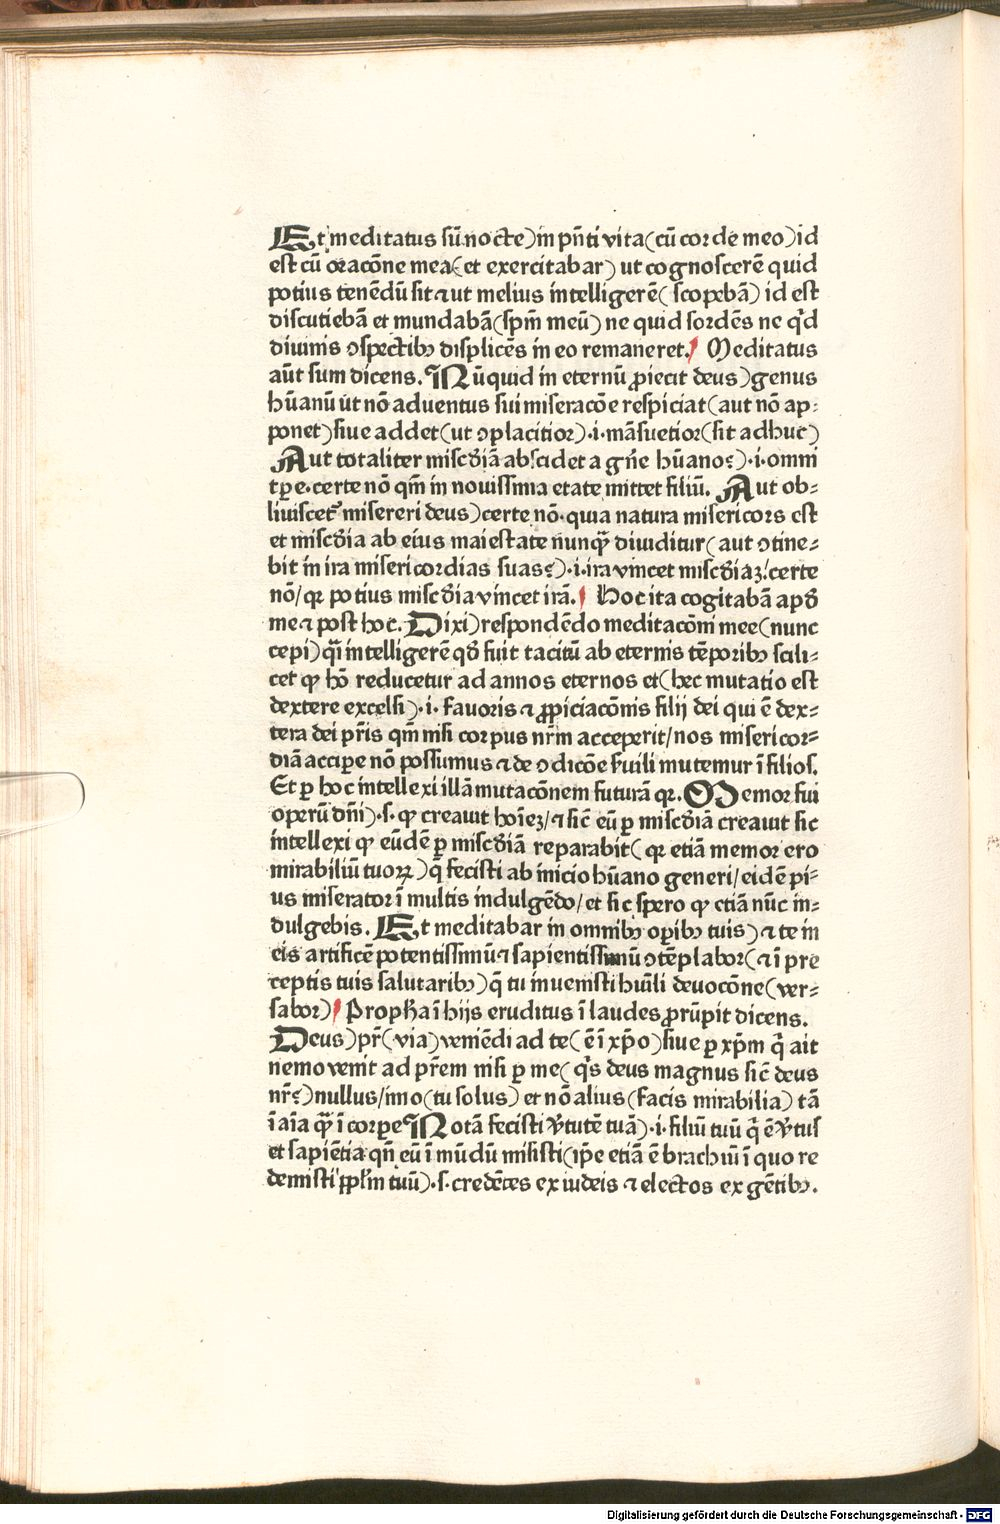 Et meditatus sū nocte)in pn̄ti vita(cū corde meo)id
est cū oracōne mea(et exercitabar) ut cognoscerē quid
potius tenēdū sit ⁊ ut melius intelligerē(scopebā) id est
discutiebā et mundabā(spm̄ meū) ne quid sordēs ne qd̄
diuinis ↄspectibꝫ displicēs in eo remaneret. Meditatus
aūt sum dicens. Nūquid in eternū ꝓiecit deus)genus
hūanū ut nō aduentus sui miseracōe respiciat(aut nō ap⸗
ponet)siue addet(ut ↄplacitior)·i·māsuetior(sit adhuc)
Aut totaliter misc̄diā abscidet a gn̄e hūano?)·i·omni
tꝑe·certe nō qm̄ in nouissima etate mittet filiū. Aut ob⸗
liuiscet᷑ misereri deus)certe nō·quia natura misericors est
et misc̄dia ab eius maiestate nunq̄ diuiditur(aut ↄtine⸗
bit in ira misericordias suas?)·i·ira vincet misc̄diaꝫ!certe
nō/qr potius misc̄dia vincet irā. Hoc ita cogitabā apd̄
me ⁊ post hoc. Dixi)respondēdo meditacōni mee(nunc
cepi)q̄i intelligerē qd̄ fuit tacitū ab eternis tēporibꝫ scili⸗
cet ꝙ hō reducetur ad annos eternos et(hec mutatio est
dextere excelsi)·i·fauoris ⁊ ꝓpiciacōnis filij dei qui ē dex⸗
tera dei pr̄is qm̄ nisi corpus nr̄m acceperit/nos misericor⸗
diā accipe nō possumus ⁊ de ↄdicōe s̄uili mutemur ī filios.
Et ꝑ hoc intellexi illā mutacōnem futurā qr. Memor fui
operū dn̄i)·s·ꝙ creauit hoīeꝫ/⁊ sic̄ eū ꝑ misc̄diā creauit sic
intellexi ꝙ eūdē ꝑ misc̄diā reparabit(qr etiā memor ero
mirabiliū tuoꝝ)q̄ fecisti ab inicio hūano generi/eidē pi⸗
us miserator ī multis indulgēdo/et sic spero ꝙ etiā nūc in⸗
dulgebis. Et meditabar in omnibꝫ oꝑibꝫ tuis)⁊ te in
eis artificē potentissimū ⁊ sapientissimū ↄtēplabor(⁊ ī pre
ceptis tuis salutaribꝫ)q̄ tu inuenisti hūili deuocōne(ver⸗
sabor) Propha ī hijs eruditus ī laudes ꝓrūpit dicens.
Deus)pr̄(via)veniēdi ad te(ē ī xp̄o)siue ꝑ xp̄m q̄ ait
nemo venit ad pr̄em nisi ꝑ me(q̄s deus magnus sic̄ deus
nr̄?)nullus/imo(tu solus) et nō alius(facis mirabilia) tā
ī aīa q̄ ī corpe Notā fecisti v̄tutē tuā)·i·filiū tuū q̄ ē v̄tus
et sapiētia qn̄ eū ī mūdū misisti(ip̄e etiā ē brachiū ī quo re
demisti ppl̄m tuū)·s·credētes ex iudeis ⁊ electos ex gētibꝫ.
Digitalisierung gefördert durch die Deutsche Forschungsgemeinschaft - DFG